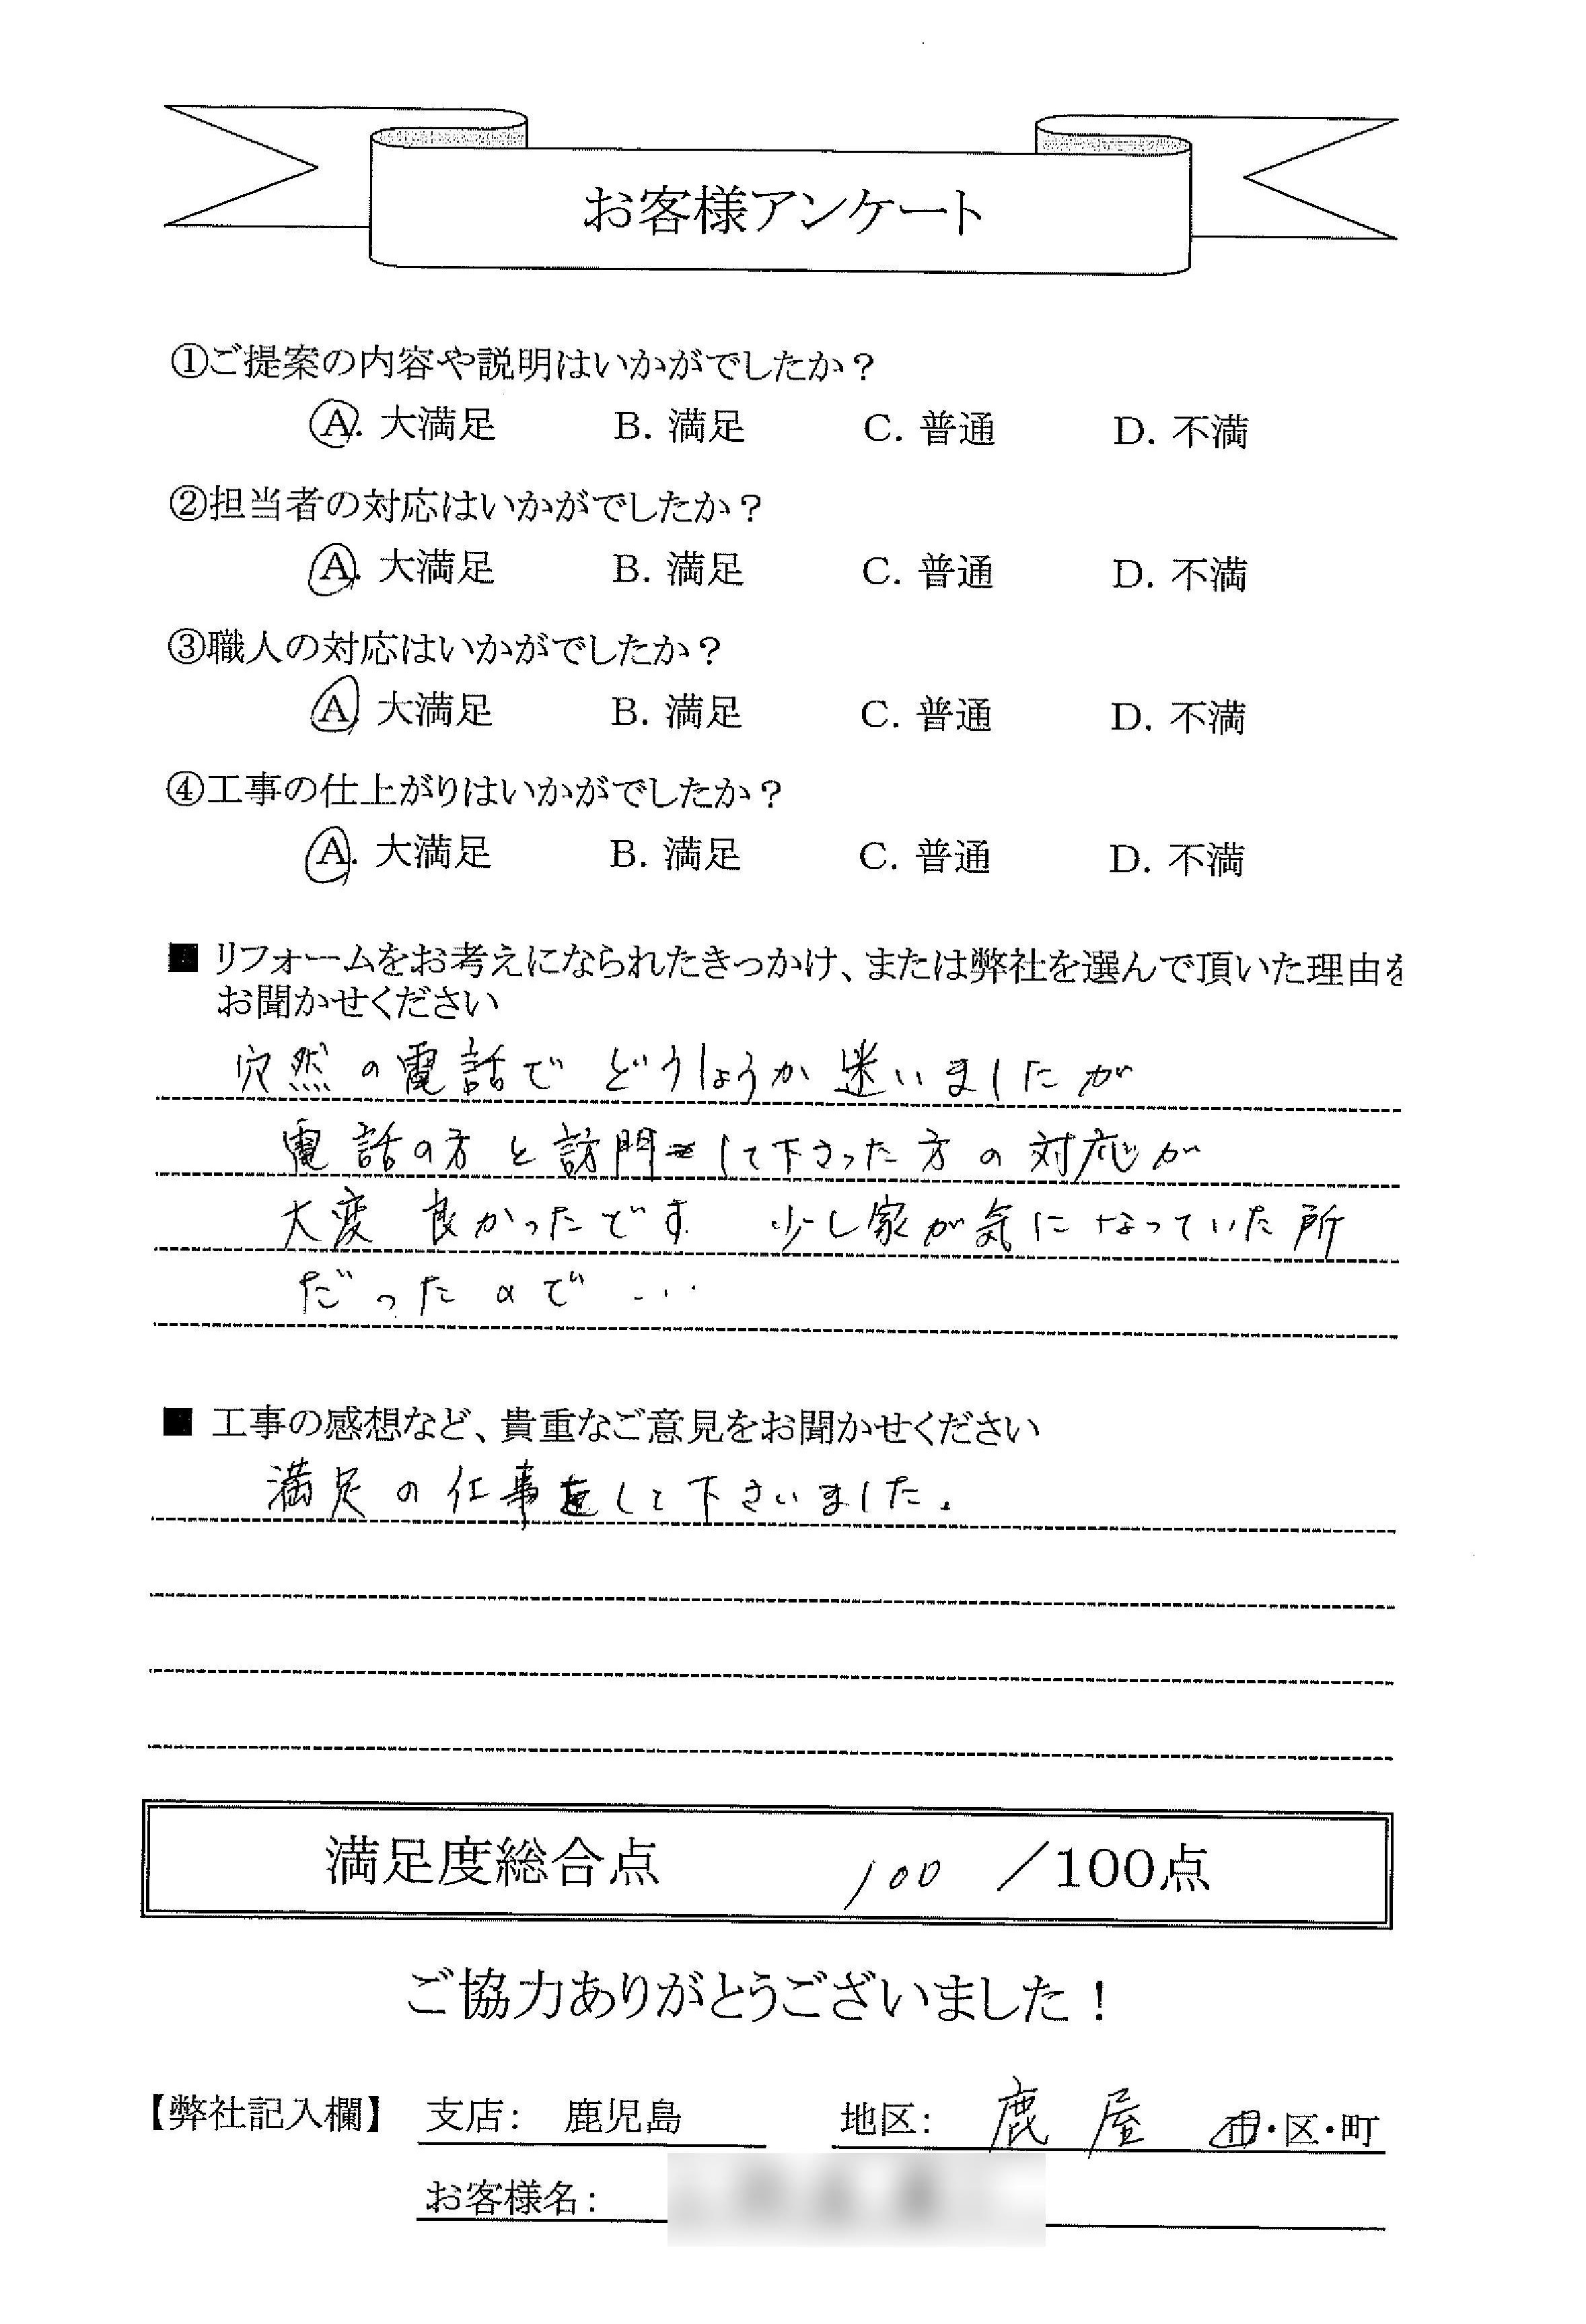 お客様アンケート
①ご提案の内容や説明はいかがでしたか？
A. 大満足 B. 満足 C. 普通 D. 不満
②担当者の対応はいかがでしたか？
A. 大満足 B. 満足 C. 普通 D. 不満
③職人の対応はいかがでしたか？
A. 大満足 B. 満足 C. 普通 D. 不満
④工事の仕上がりはいかがでしたか？
A. 大満足 B. 満足 C. 普通 D. 不満
■ リフォームをお考えになられたきっかけ、または弊社を選んで頂いた理由を
お聞かせください
穴然の電話で どうしょうか 迷いましたが
電話の方と訪問して下さった方の対応が
大変 良かったです 少し家が気になっていた所
だったので…
■ 工事の感想など、貴重なご意見をお聞かせください
満足の仕事をして下さいました。
満足度総合点 100 ／100点
ご協力ありがとうございました！
【弊社記入欄】 支店： 鹿児島 地区： 鹿屋 市・区・町
お客様名：